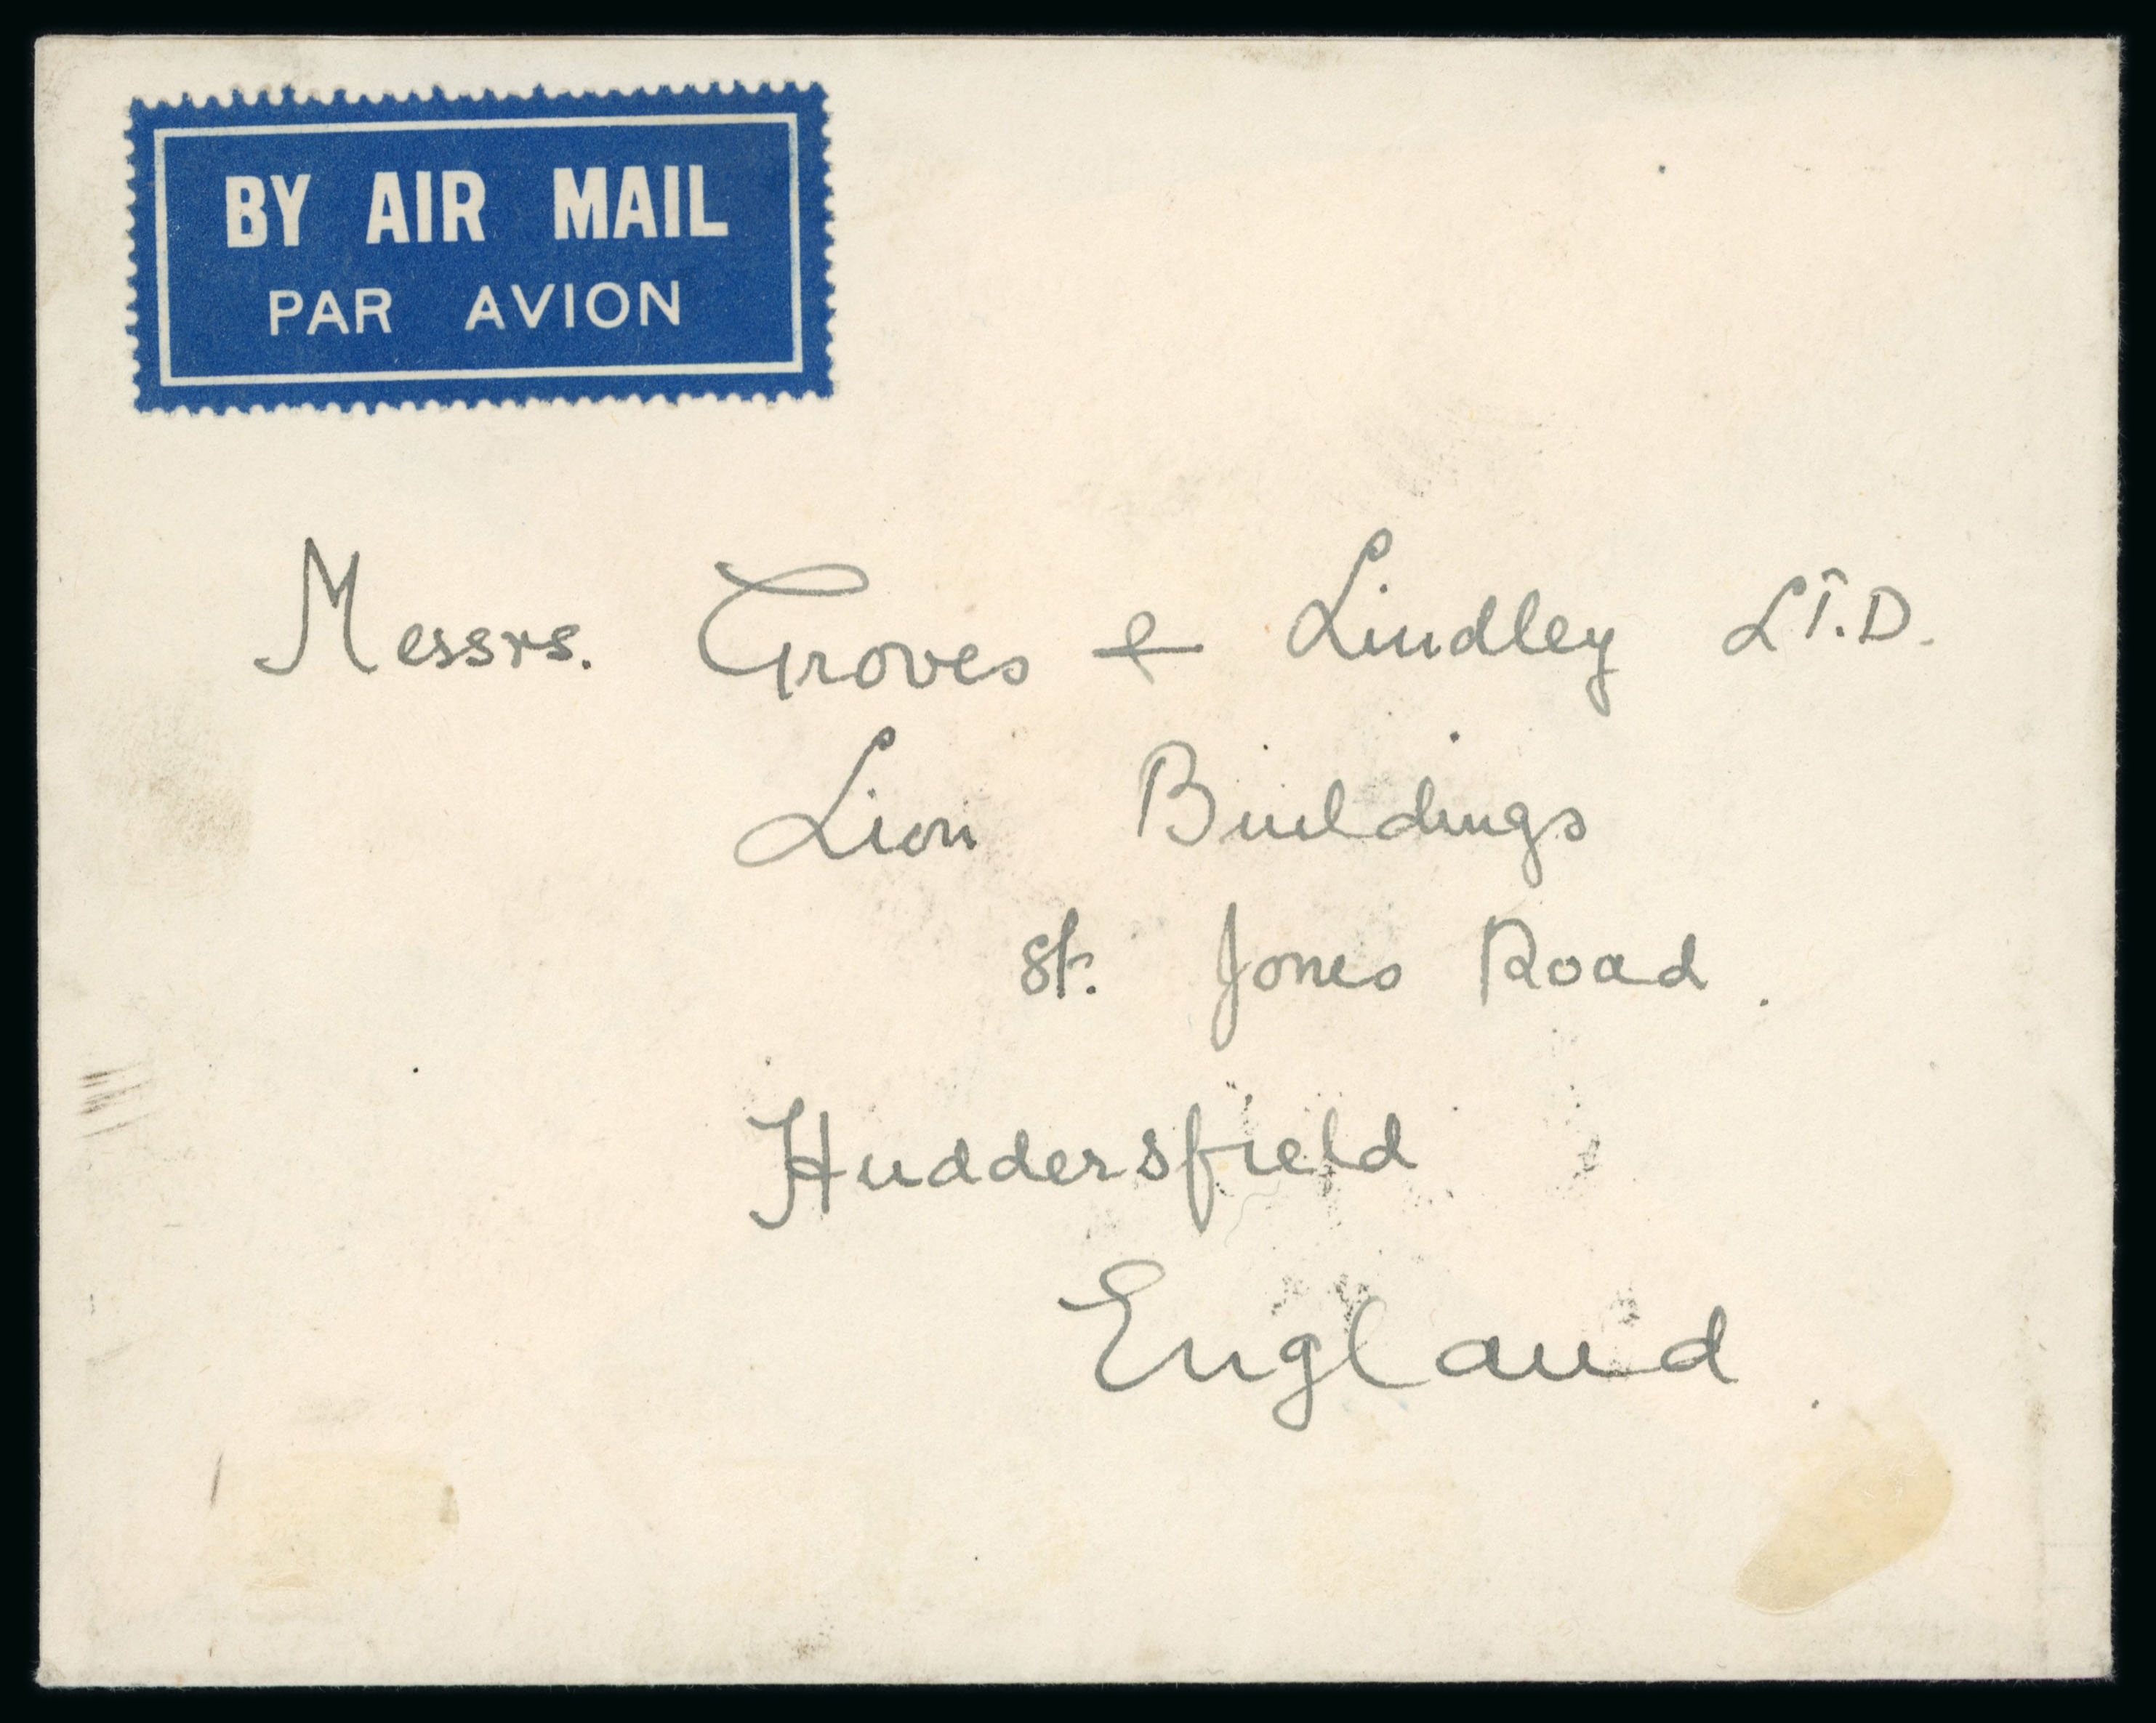 BY AIR MAIL
PAR AVION
Messrs. Groves & Lindley LT.D.
Lion Buildings
St. Jones Road.
Huddersfield
England.